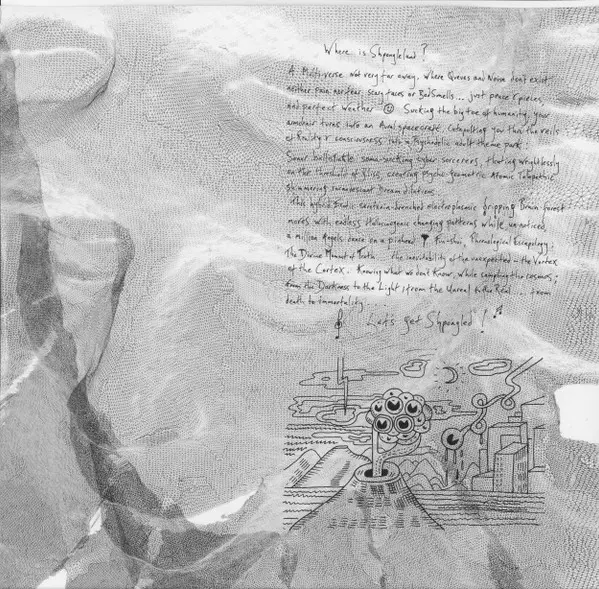 Where is Shpongleland?
A Multiverse not very far away. Where Queues and Noise don't exist
neither Pain, nor fear, scary faces or BadSmells... just peace & pieces,
and perfect Weather ☺ Sucking the big toe of humanity, your
armchair turns into an Aural spacecraft. Catapulting you thru the veils
of Reality & consciousness into a Psychedelic adult theme park.
Sonar soma-sucking cyber sorcerers, floating weightlessly
on the threshold of Bliss, creating Psycho Geometric Atomic Telepathic
Shimmering Dream dilations
This hybrid serotonin-drenched electroplasmic dripping Brain-forest
moves with endless Hallucinogenic changing patterns while un-noticed
a million Angels dance on a pinhead Escapology:
The Divine Moment of Truth the inevitability of the unexpected in the Vortex
of the Cortex. Knowing what we don't Know, while sampling the cosmos;
from the Darkness to the Light; from the Unreal to the Real from
death to immortality...
Let's get Shpongled!